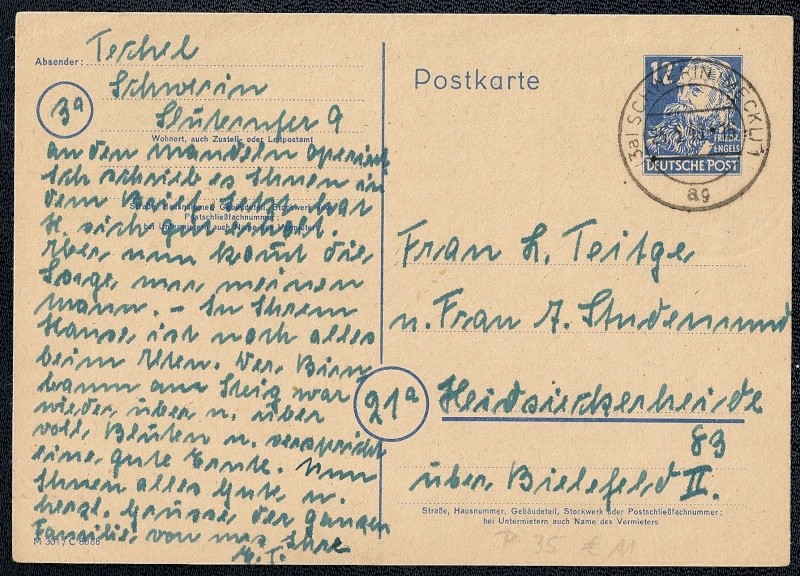 Absender: Teschel
Schwerin
3a
Slüterufer 9
Wohnort, auch Zustell- oder Leitpostamt
an den Mandeln operiert
Ich schrieb es Ihnen in
dem Brief. Jetzt hat
Straße, Hausnummer, Gebäudeteil, Stockwerk oder
Postschließfachnummer;
bei Untermietern auch Name des Vermieters
H. sich gut erholt.
Aber nun kommt die
Sorge um meinen
Mann. – In Ihrem
Hause ist noch alles
beim Alten. Der Birn
baum am Steig war
wieder über u. über
voll Blüten u. verspricht
eine gute Ernte. Nun
Ihnen alles Gute u.
herzl. Grüsse der ganzen
Familie, von uns Ihre
M. T.
M 301 / C 8088
Postkarte
12
FRIEDR.
ENGELS
DEUTSCHE POST
(3a) SCHWERIN (MECKL) 1
ag
Frau L. Teitge
u. Frau A. Studemund
21a
Heidsieckerheide
83
über Bielefeld II.
Straße, Hausnummer, Gebäudeteil, Stockwerk oder Postschließfachnummer;
bei Untermietern auch Name des Vermieters
P 35